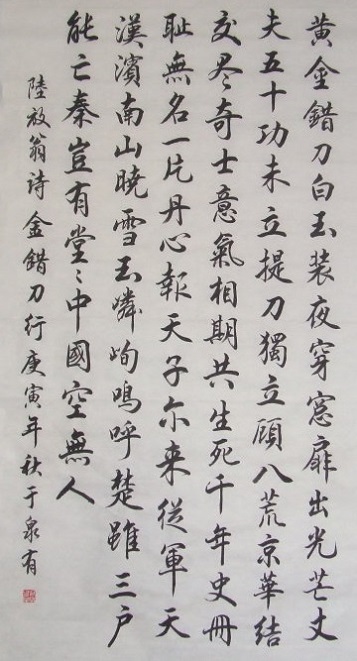 黄金錯刀白玉装夜穿窓扉出光芒丈
夫五十功未立提刀獨立顧八荒京華結
交尽奇士意氣相期共生死千年史冊
恥無名一片丹心報天子尓来從軍天
漢濱南山曉雪玉嶙峋嗚呼楚雖三户
能亡秦豈有堂〻中國空無人
陸放翁诗金錯刀行庚寅年秋于泉有